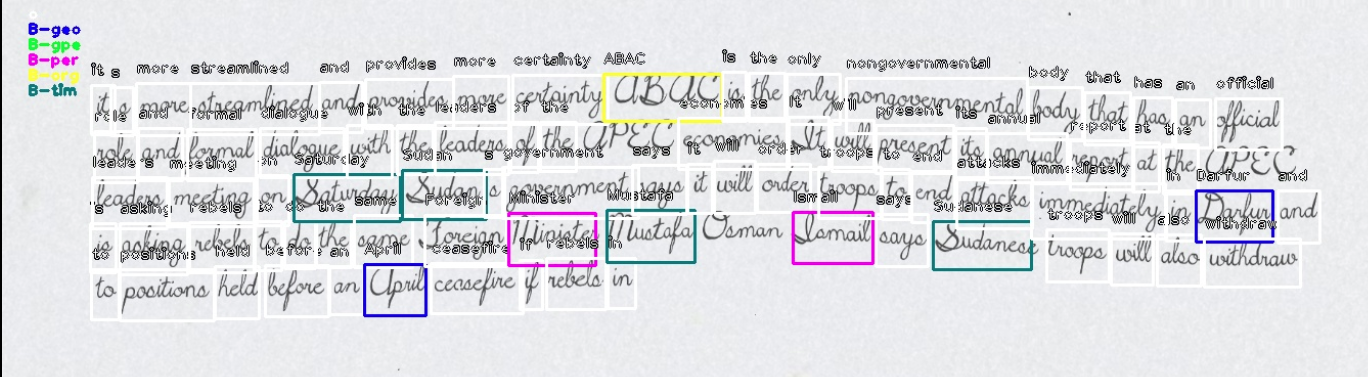 B-geo
B-gpe
B-per
B-org
B-tim
it s more streamlined and provides more certainty ABAC is the only nongovernmental body that has an official
it s more streamlined and provides more certainty ABAC is the only nongovernmental body that has an official
role and formal dialogue with the leaders of the economies It will present its annual report at the
role and formal dialogue with the leaders of the APEC economies It will present its annual report at the APEC
leaders meeting on Saturday Sudan s government says it will order troops to end attacks immediately in Darfur and
leaders meeting on Saturday Sudan s government says it will order troops to end attacks immediately in Darfur and
is asking rebels to do the same Foreign Minister Mustafa Ismail says Sudanese troops will also withdraw
is asking rebels to do the same Foreign Minister Mustafa Osman Ismail says Sudanese troops will also withdraw
to positions held before an April ceasefire if rebels in
to positions held before an April ceasefire if rebels in